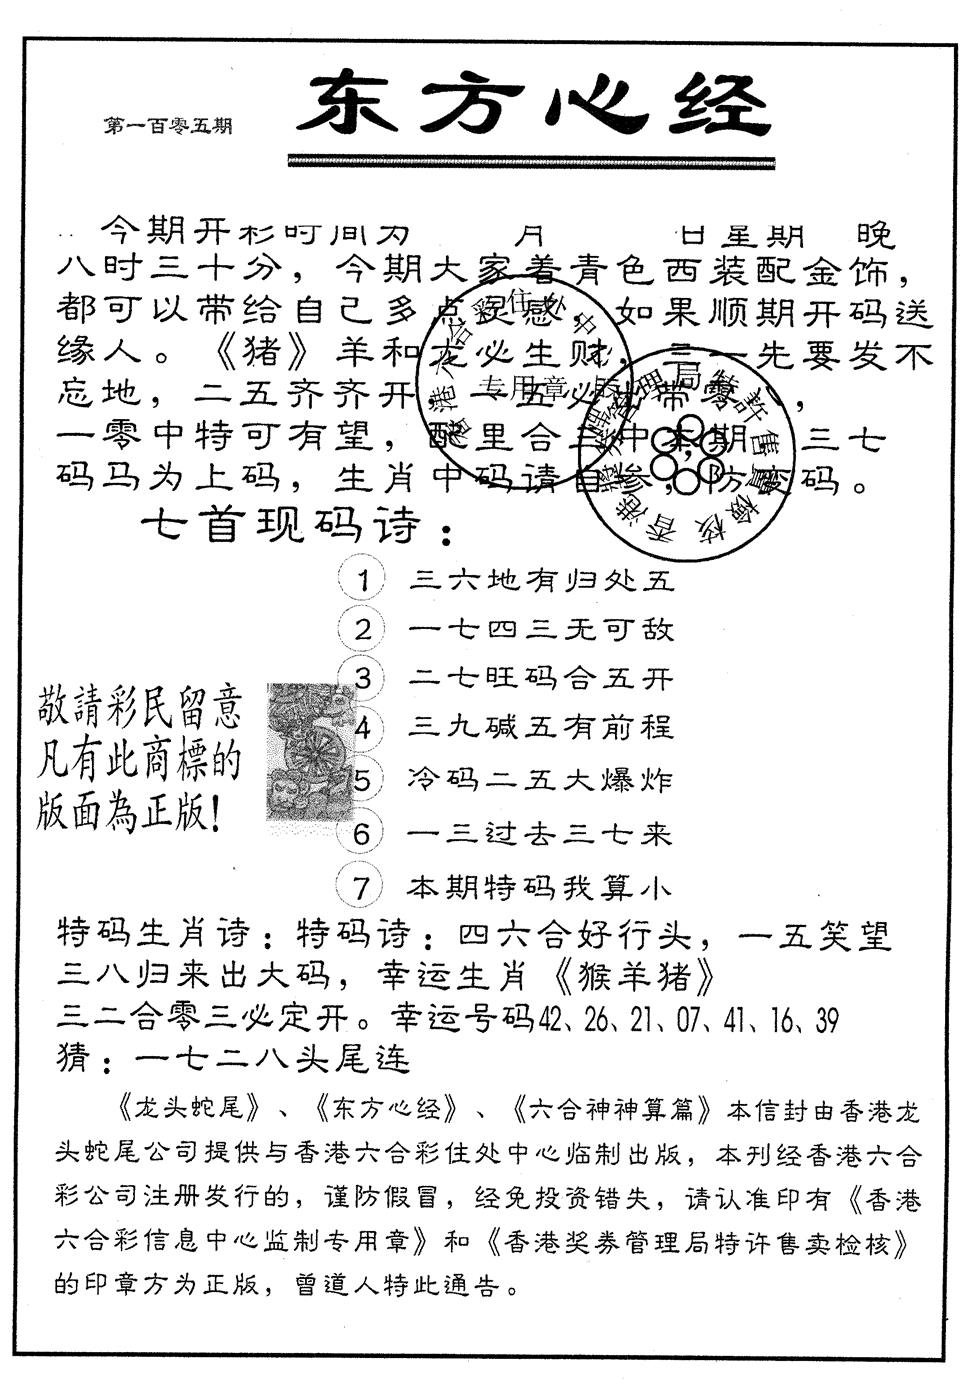 东方心经
第一百零五期
今期开彩时间为 月 日星期 晚
八时三十分，今期大家着青色西装配金饰，
都可以带给自己多点灵感，如果顺期开码送
缘人。《猪》羊和龙必生财，三一先要发不
忘地，二五齐齐开，一五必 带零，
一零中特可有望，配里合三中本期，三七
码马为上码，生肖中码请自参，防 码。
专用章
七首现码诗：
1 三六地有归处五
2 一七四三无可敌
3 二七旺码合五开
4 三九碱五有前程
5 冷码二五大爆炸
6 一三过去三七来
7 本期特码我算小
敬請彩民留意
凡有此商標的
版面為正版！
特码生肖诗：特码诗：四六合好行头，一五笑望
三八归来出大码，幸运生肖《猴羊猪》
三二合零三必定开。幸运号码42、26、21、07、41、16、39
猜：一七二八头尾连
《龙头蛇尾》、《东方心经》、《六合神神算篇》本信封由香港龙
头蛇尾公司提供与香港六合彩住处中心临制出版，本刊经香港六合
彩公司注册发行的，谨防假冒，经免投资错失，请认准印有《香港
六合彩信息中心监制专用章》和《香港奖券管理局特许售卖检核》
的印章方为正版，曾道人特此通告。